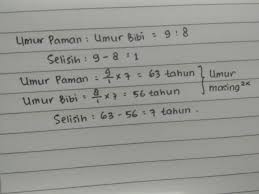 Umur Paman : Umur Bibi = 9 : 8
Selisih : 9 - 8 = 1
Umur Paman = 9/1 x 7 = 63 tahun } Umur
Umur Bibi = 8/1 x 7 = 56 tahun } masing2x
Selisih : 63 - 56 = 7 tahun .